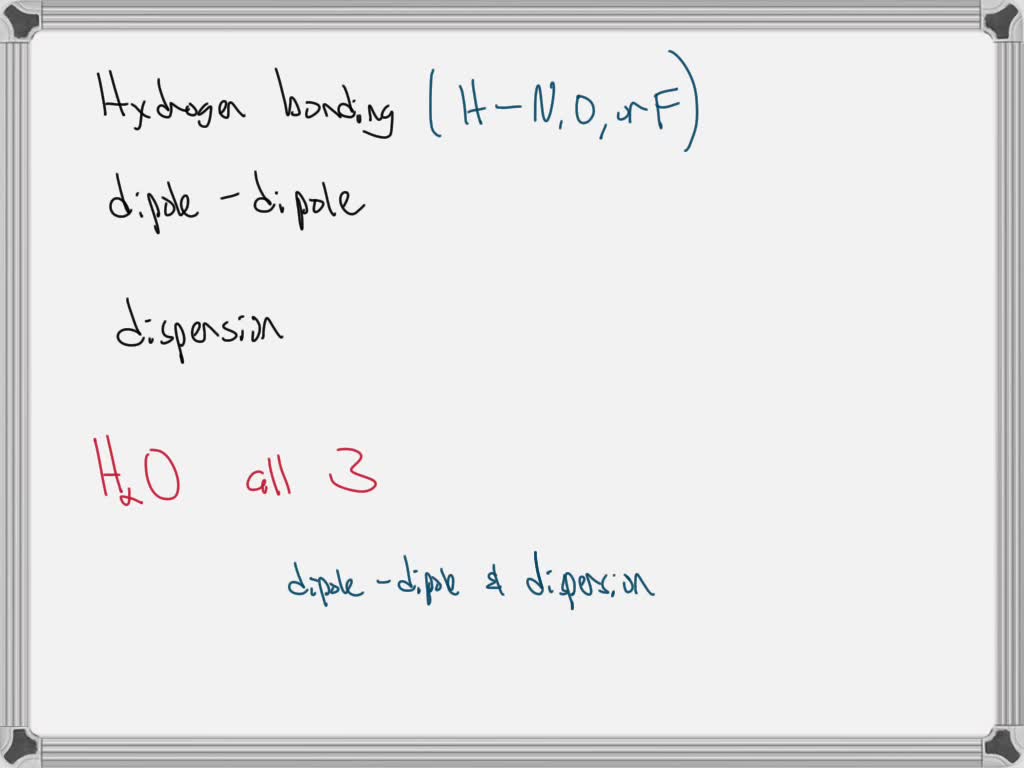 Hydrogen bonding (H-N, O, or F)
dipole - dipole
dispersion
H₂O all 3
dipole - dipole & dispersion